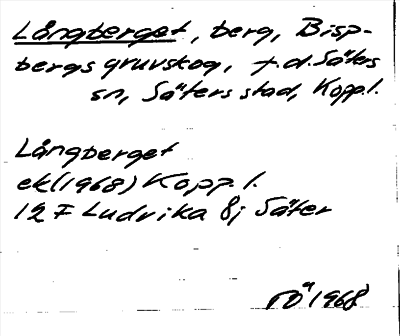 Långberget, berg, Bisp-
bergs gruvskog, f.d. Säters
sn, Säters stad, Kopp.l.
Långberget
ek (1968) Kopp. l.
12 F Ludvika 8j Säter
RÖ 1968